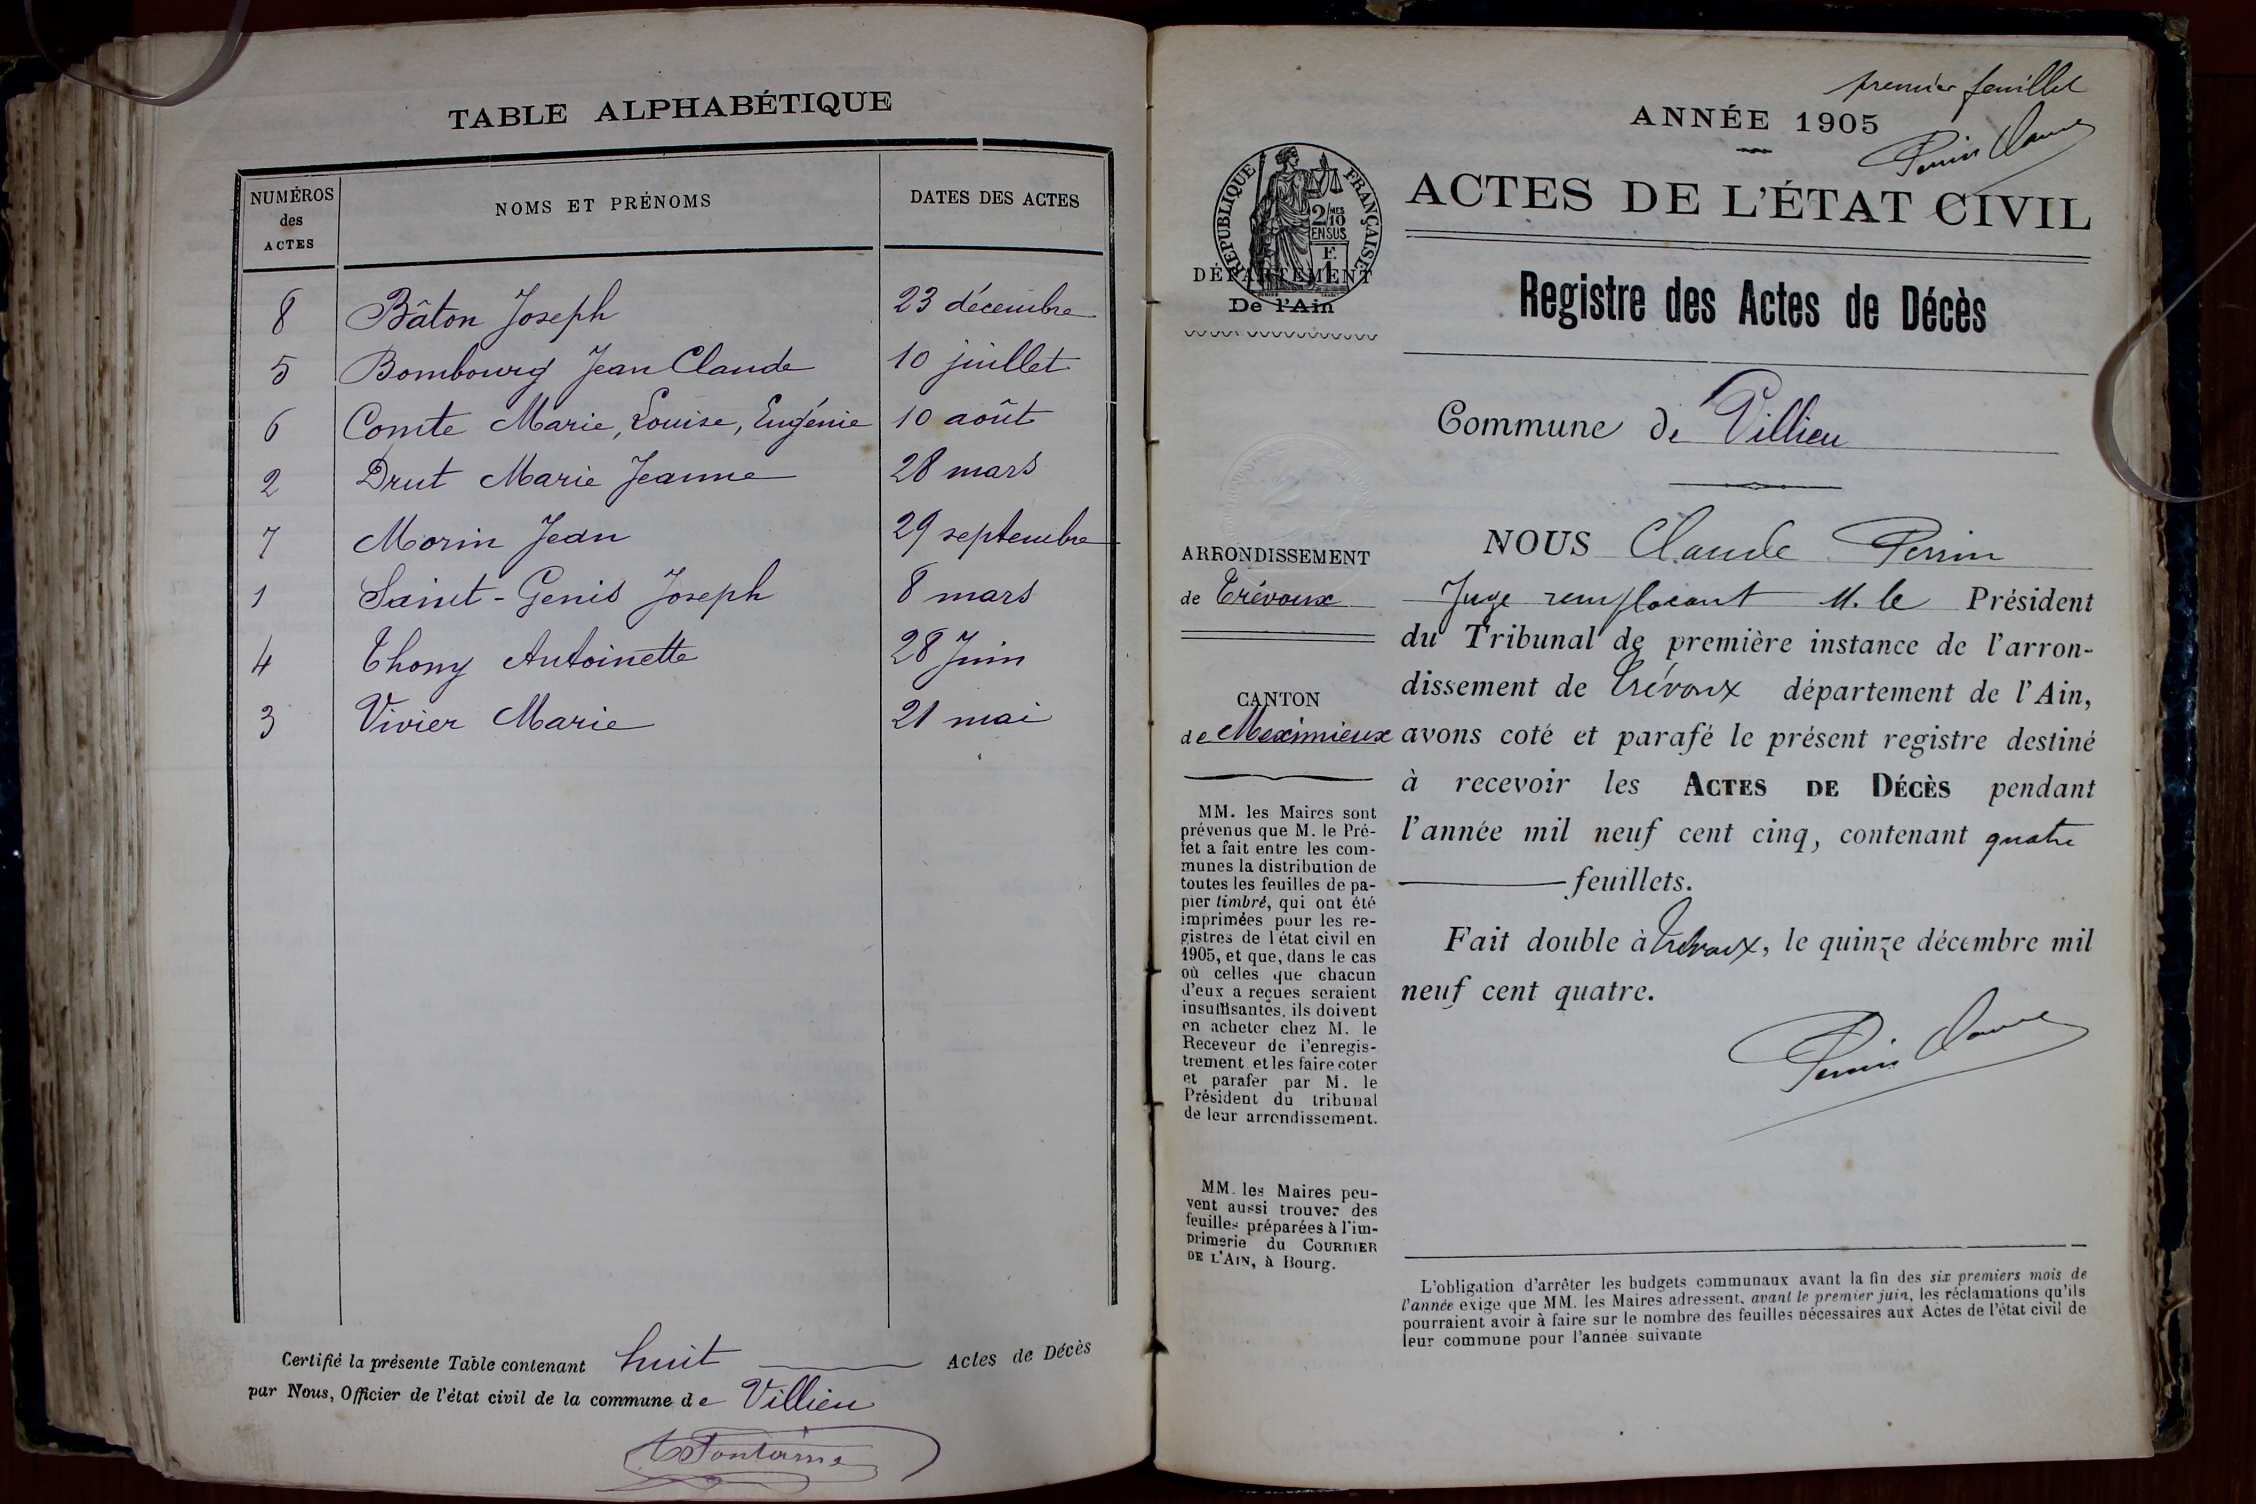 TABLE ALPHABÉTIQUE
NUMÉROS des ACTES
NOMS ET PRÉNOMS
DATES DES ACTES
8 Bâton Joseph 23 décembre
5 Bombourg Jean Claude 10 juillet
6 Comte Marie, Louise, Eugénie 10 août
2 Drut Marie Jeanne 28 mars
7 Morin Jean 29 septembre
1 Saint-Genis Joseph 8 mars
4 Thony Antoinette 28 Juin
3 Vivier Marie 21 mai
Certifié la présente Table contenant huit Actes de Décès
par Nous, Officier de l'état civil de la commune de Villieu
Fontaine
premier feuillet
ANNÉE 1905
Perrin Claude
ACTES DE L'ÉTAT CIVIL
RÉPUBLIQUE FRANÇAISE
2/10 MES
EN SUS
DÉPARTEMENT
De l'Ain
Registre des Actes de Décès
Commune de Villieu
ARRONDISSEMENT
de Trévoux
CANTON
de Meximieux
MM. les Maires sont
prévenus que M. le Pré-
fet a fait entre les com-
munes la distribution de
toutes les feuilles de pa-
pier timbré, qui ont été
imprimées pour les re-
gistres de l'état civil en
1905, et que, dans le cas
où celles que chacun
d'eux a reçues seraient
insuffisantes, ils doivent
en acheter chez M. le
Receveur de l'enregis-
trement et les faire coter
et parafer par M. le
Président du tribunal
de leur arrondissement.
MM. les Maires peu-
vent aussi trouver des
feuilles préparées à l'im-
primerie du COURRIER
DE L'AIN, à Bourg.
NOUS Claude Perrin
Juge remplaçant M. le Président
du Tribunal de première instance de l'arron-
dissement de Trévoux département de l'Ain,
avons coté et parafé le présent registre destiné
à recevoir les ACTES DE DÉCÈS pendant
l'année mil neuf cent cinq, contenant quatre
feuillets.
Fait double à Trévoux, le quinze décembre mil
neuf cent quatre.
Perrin Claude
L'obligation d'arrêter les budgets communaux avant la fin des six premiers mois de
l'année exige que MM. les Maires adressent, avant le premier juin, les réclamations qu'ils
pourraient avoir à faire sur le nombre des feuilles nécessaires aux Actes de l'état civil de
leur commune pour l'année suivante